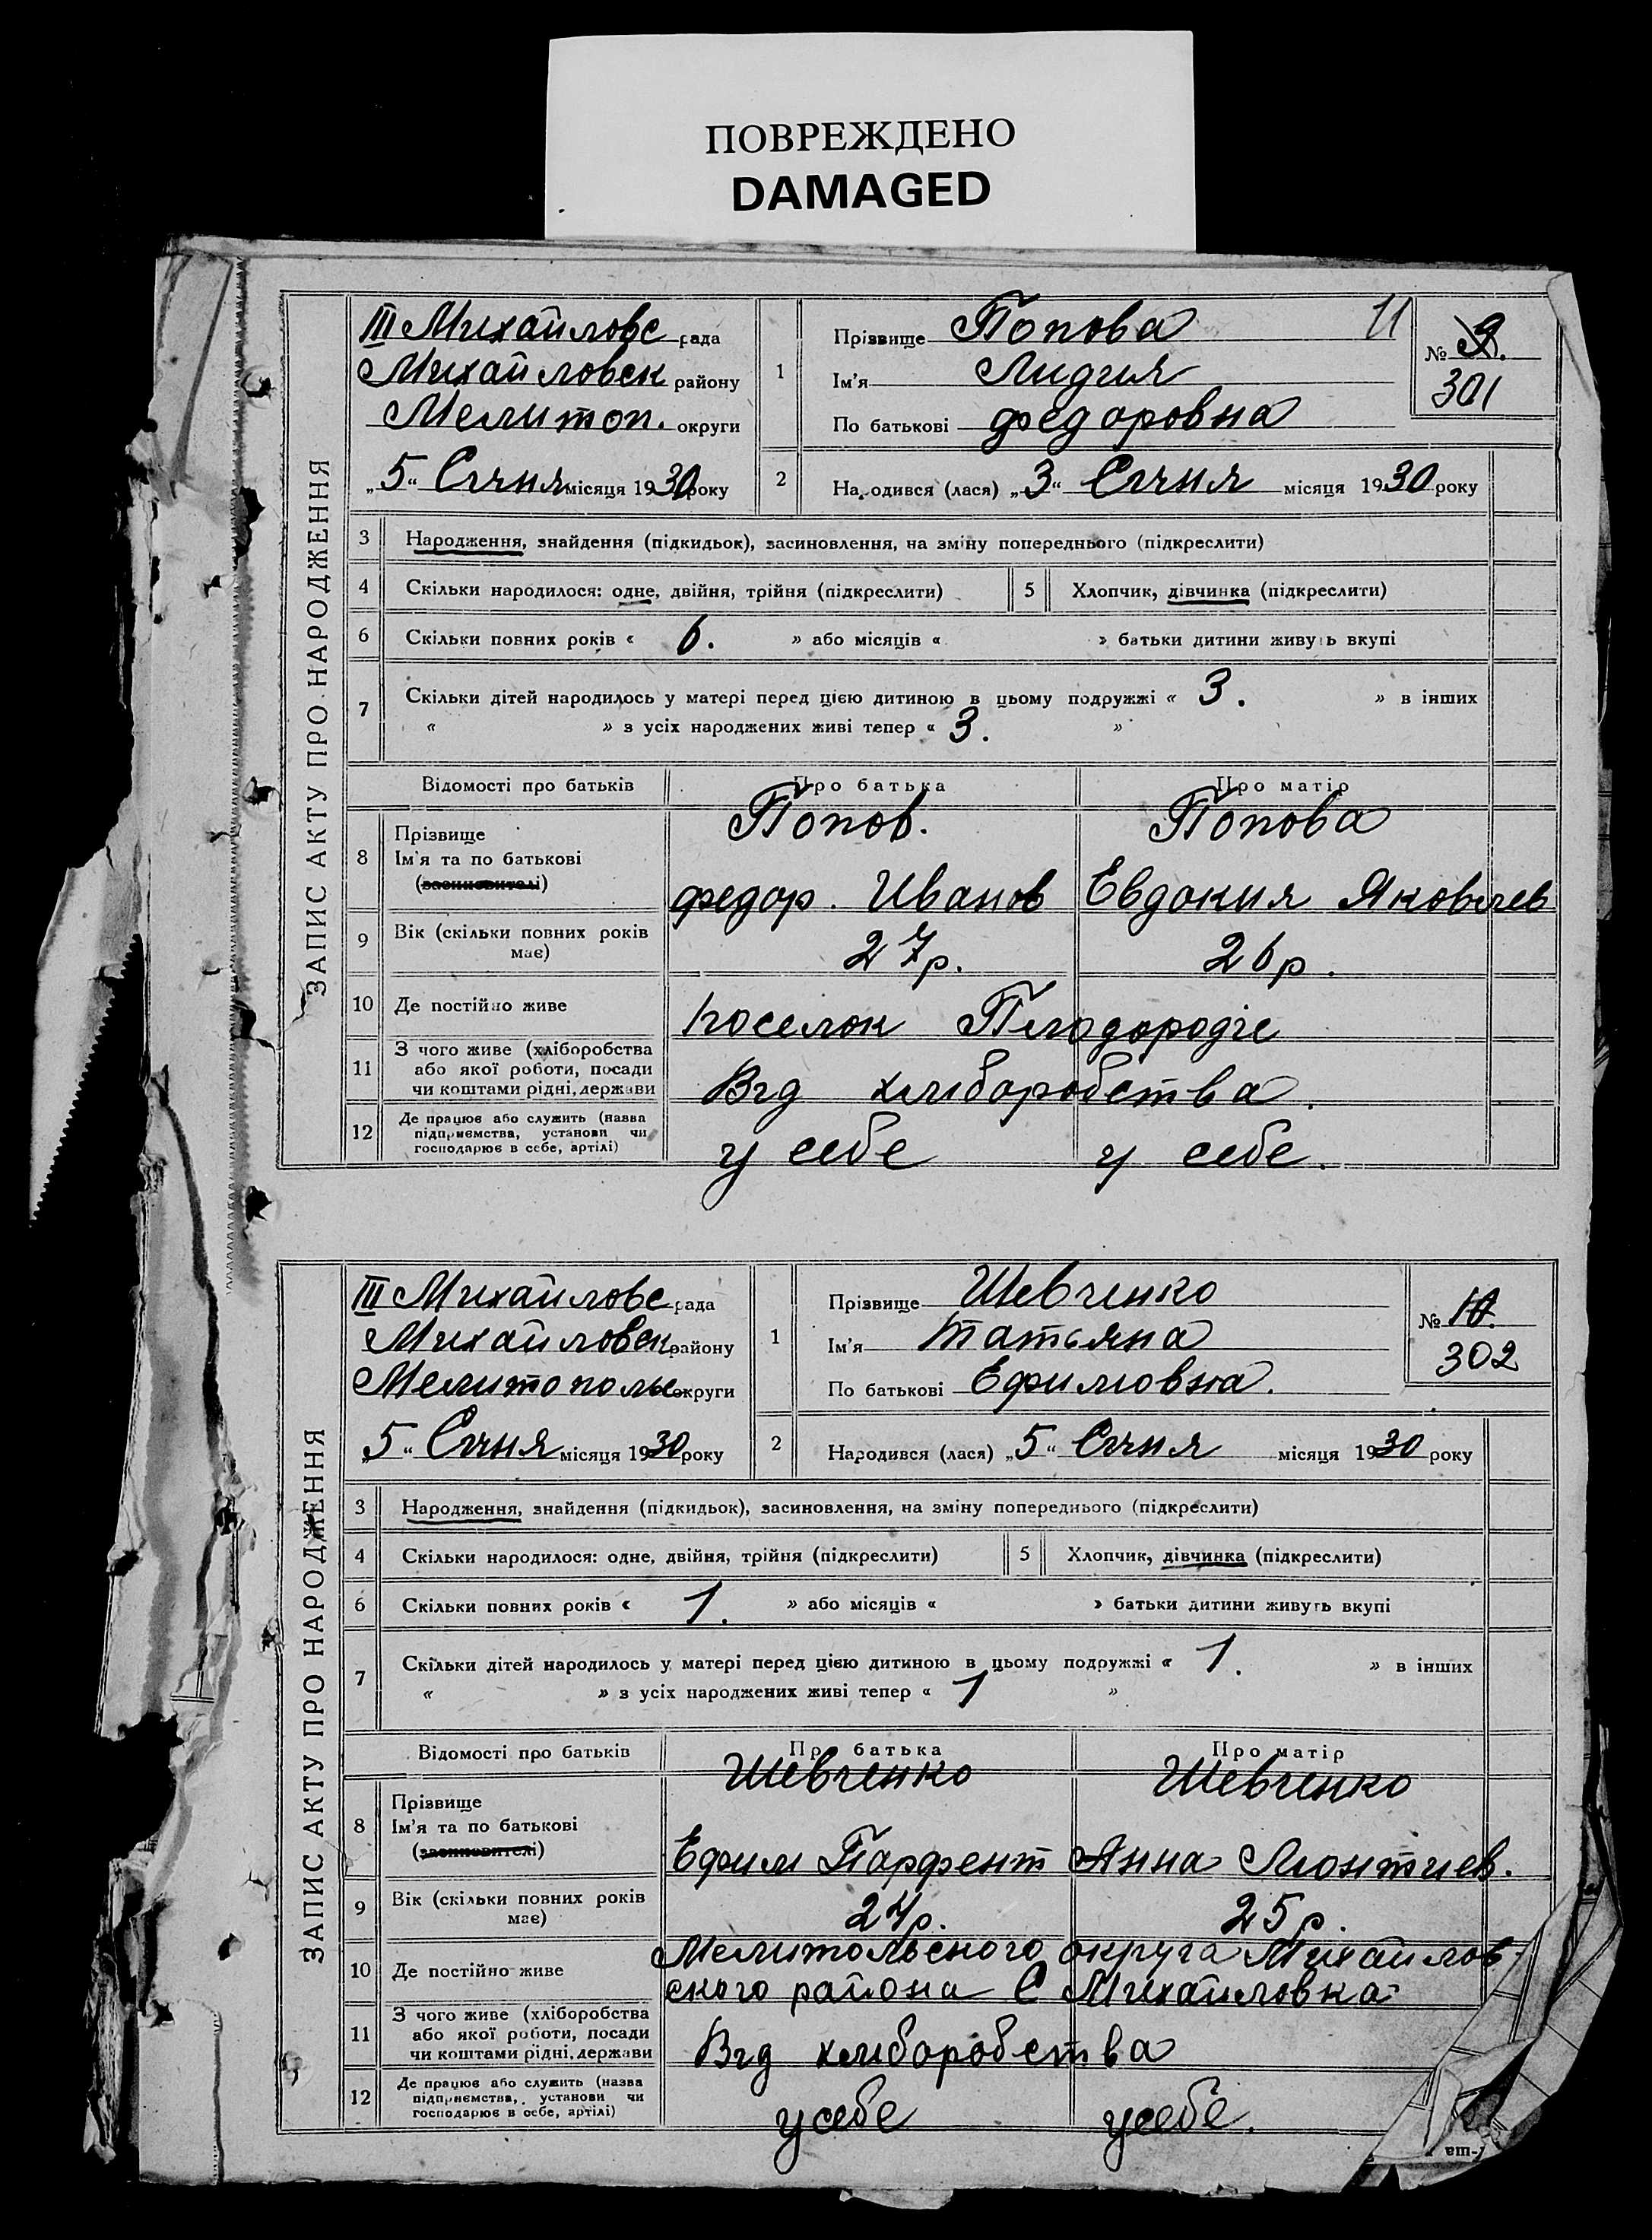 ПОВРЕЖДЕНО
DAMAGED
ЗАПИС АКТУ ПРО НАРОДЖЕННЯ
III Михайловс рада
Михайловск району
Мелитоп. округи
„5“ Січня місяця 1930 року
1
Прізвище Попова
11
Ім'я Лидия
По батькові федоровна
№ 9.
301
2
Народився (лася) „3“ Січня місяця 1930 року
3 Народження, знайдення (підкидьок), засиновлення, на зміну попереднього (підкреслити)
4 Скільки народилося: одне, двійня, трійня (підкреслити) 5 Хлопчик, дівчинка (підкреслити)
6 Скільки повних років « 6. » або місяців « » батьки дитини живуть вкупі
7 Скільки дітей народилось у матері перед цією дитиною в цьому подружжі « 3. » в інших
« » з усіх народжених живі тепер « 3. »
Відомості про батьків Про батька Про матір
8 Прізвище
Ім'я та по батькові
(засиновителі)
Попов. Попова
федор. Иванов Евдокия Яковлев
9 Вік (скільки повних років має)
27р. 26р.
10 Де постійно живе
поселок Плодородіе
11 З чого живе (хліборобства
або якої роботи, посади
чи коштами рідні, держави
Від хліборобства.
12 Де працює або служить (назва
підприємства, установи чи
господарює в себе, артілі)
у себе у себе.
ЗАПИС АКТУ ПРО НАРОДЖЕННЯ
III Михайловс рада
Михайловск району
Мелитопольс округи
„5“ Січня місяця 1930 року
1
Прізвище Шевченко
Ім'я Татьяна
По батькові Ефимовна.
№ 10.
302
2
Народився (лася) „5“ Січня місяця 1930 року
3 Народження, знайдення (підкидьок), засиновлення, на зміну попереднього (підкреслити)
4 Скільки народилося: одне, двійня, трійня (підкреслити) 5 Хлопчик, дівчинка (підкреслити)
6 Скільки повних років « 1. » або місяців « » батьки дитини живуть вкупі
7 Скільки дітей народилось у матері перед цією дитиною в цьому подружжі « 1. » в інших
« » з усіх народжених живі тепер « 1 »
Відомості про батьків Про батька Про матір
8 Прізвище
Ім'я та по батькові
(засиновителі)
Шевченко Шевченко
Ефим Парфент Анна Леонтиев.
9 Вік (скільки повних років має)
27р. 25р.
10 Де постійно живе
Мелитольського округа Михайлов-
ского района С Михайловка
11 З чого живе (хліборобства
або якої роботи, посади
чи коштами рідні, держави
Від хліборобства
12 Де працює або служить (назва
підприємства, установи чи
господарює в себе, артілі)
у себе у себе.